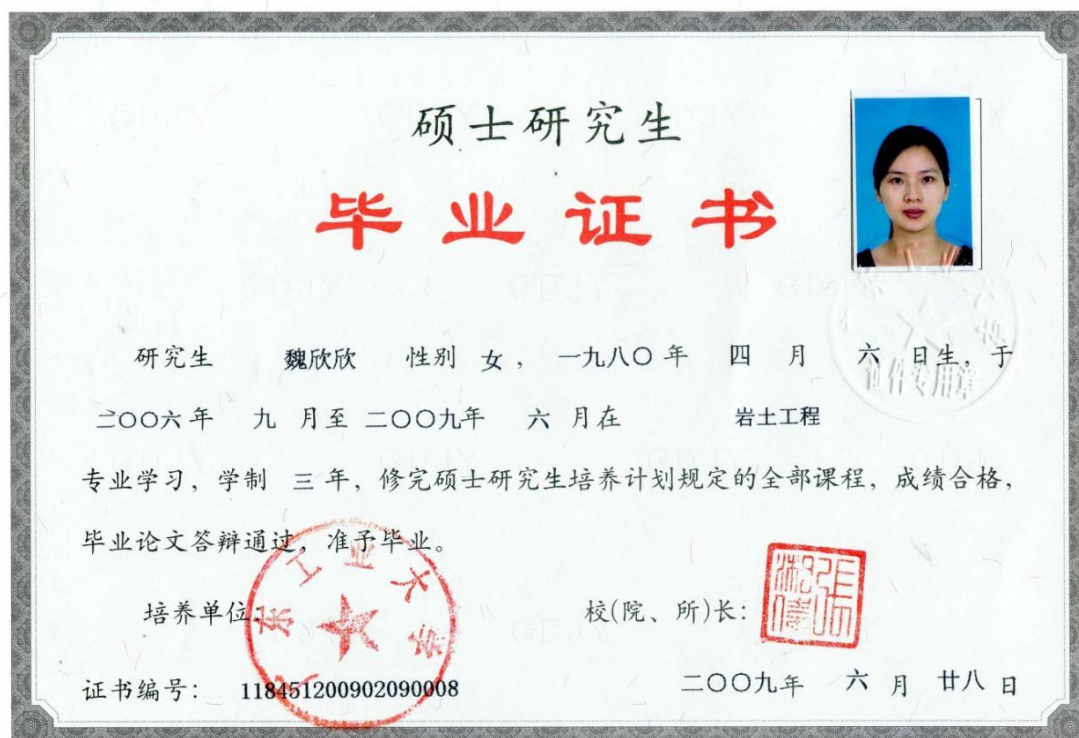 硕士研究生
毕业证书
研究生 魏欣欣 性别 女， 一九八〇年 四 月 六 日生，于
二〇〇六年 九 月至 二〇〇九年 六 月在 岩土工程
专业学习，学制 三 年，修完硕士研究生培养计划规定的全部课程，成绩合格，
毕业论文答辩通过，准予毕业。
广东工业大学
培养单位：
校(院、所)长：
证书编号： 118451200902090008
二〇〇九年 六 月 廿八 日
证件专用章